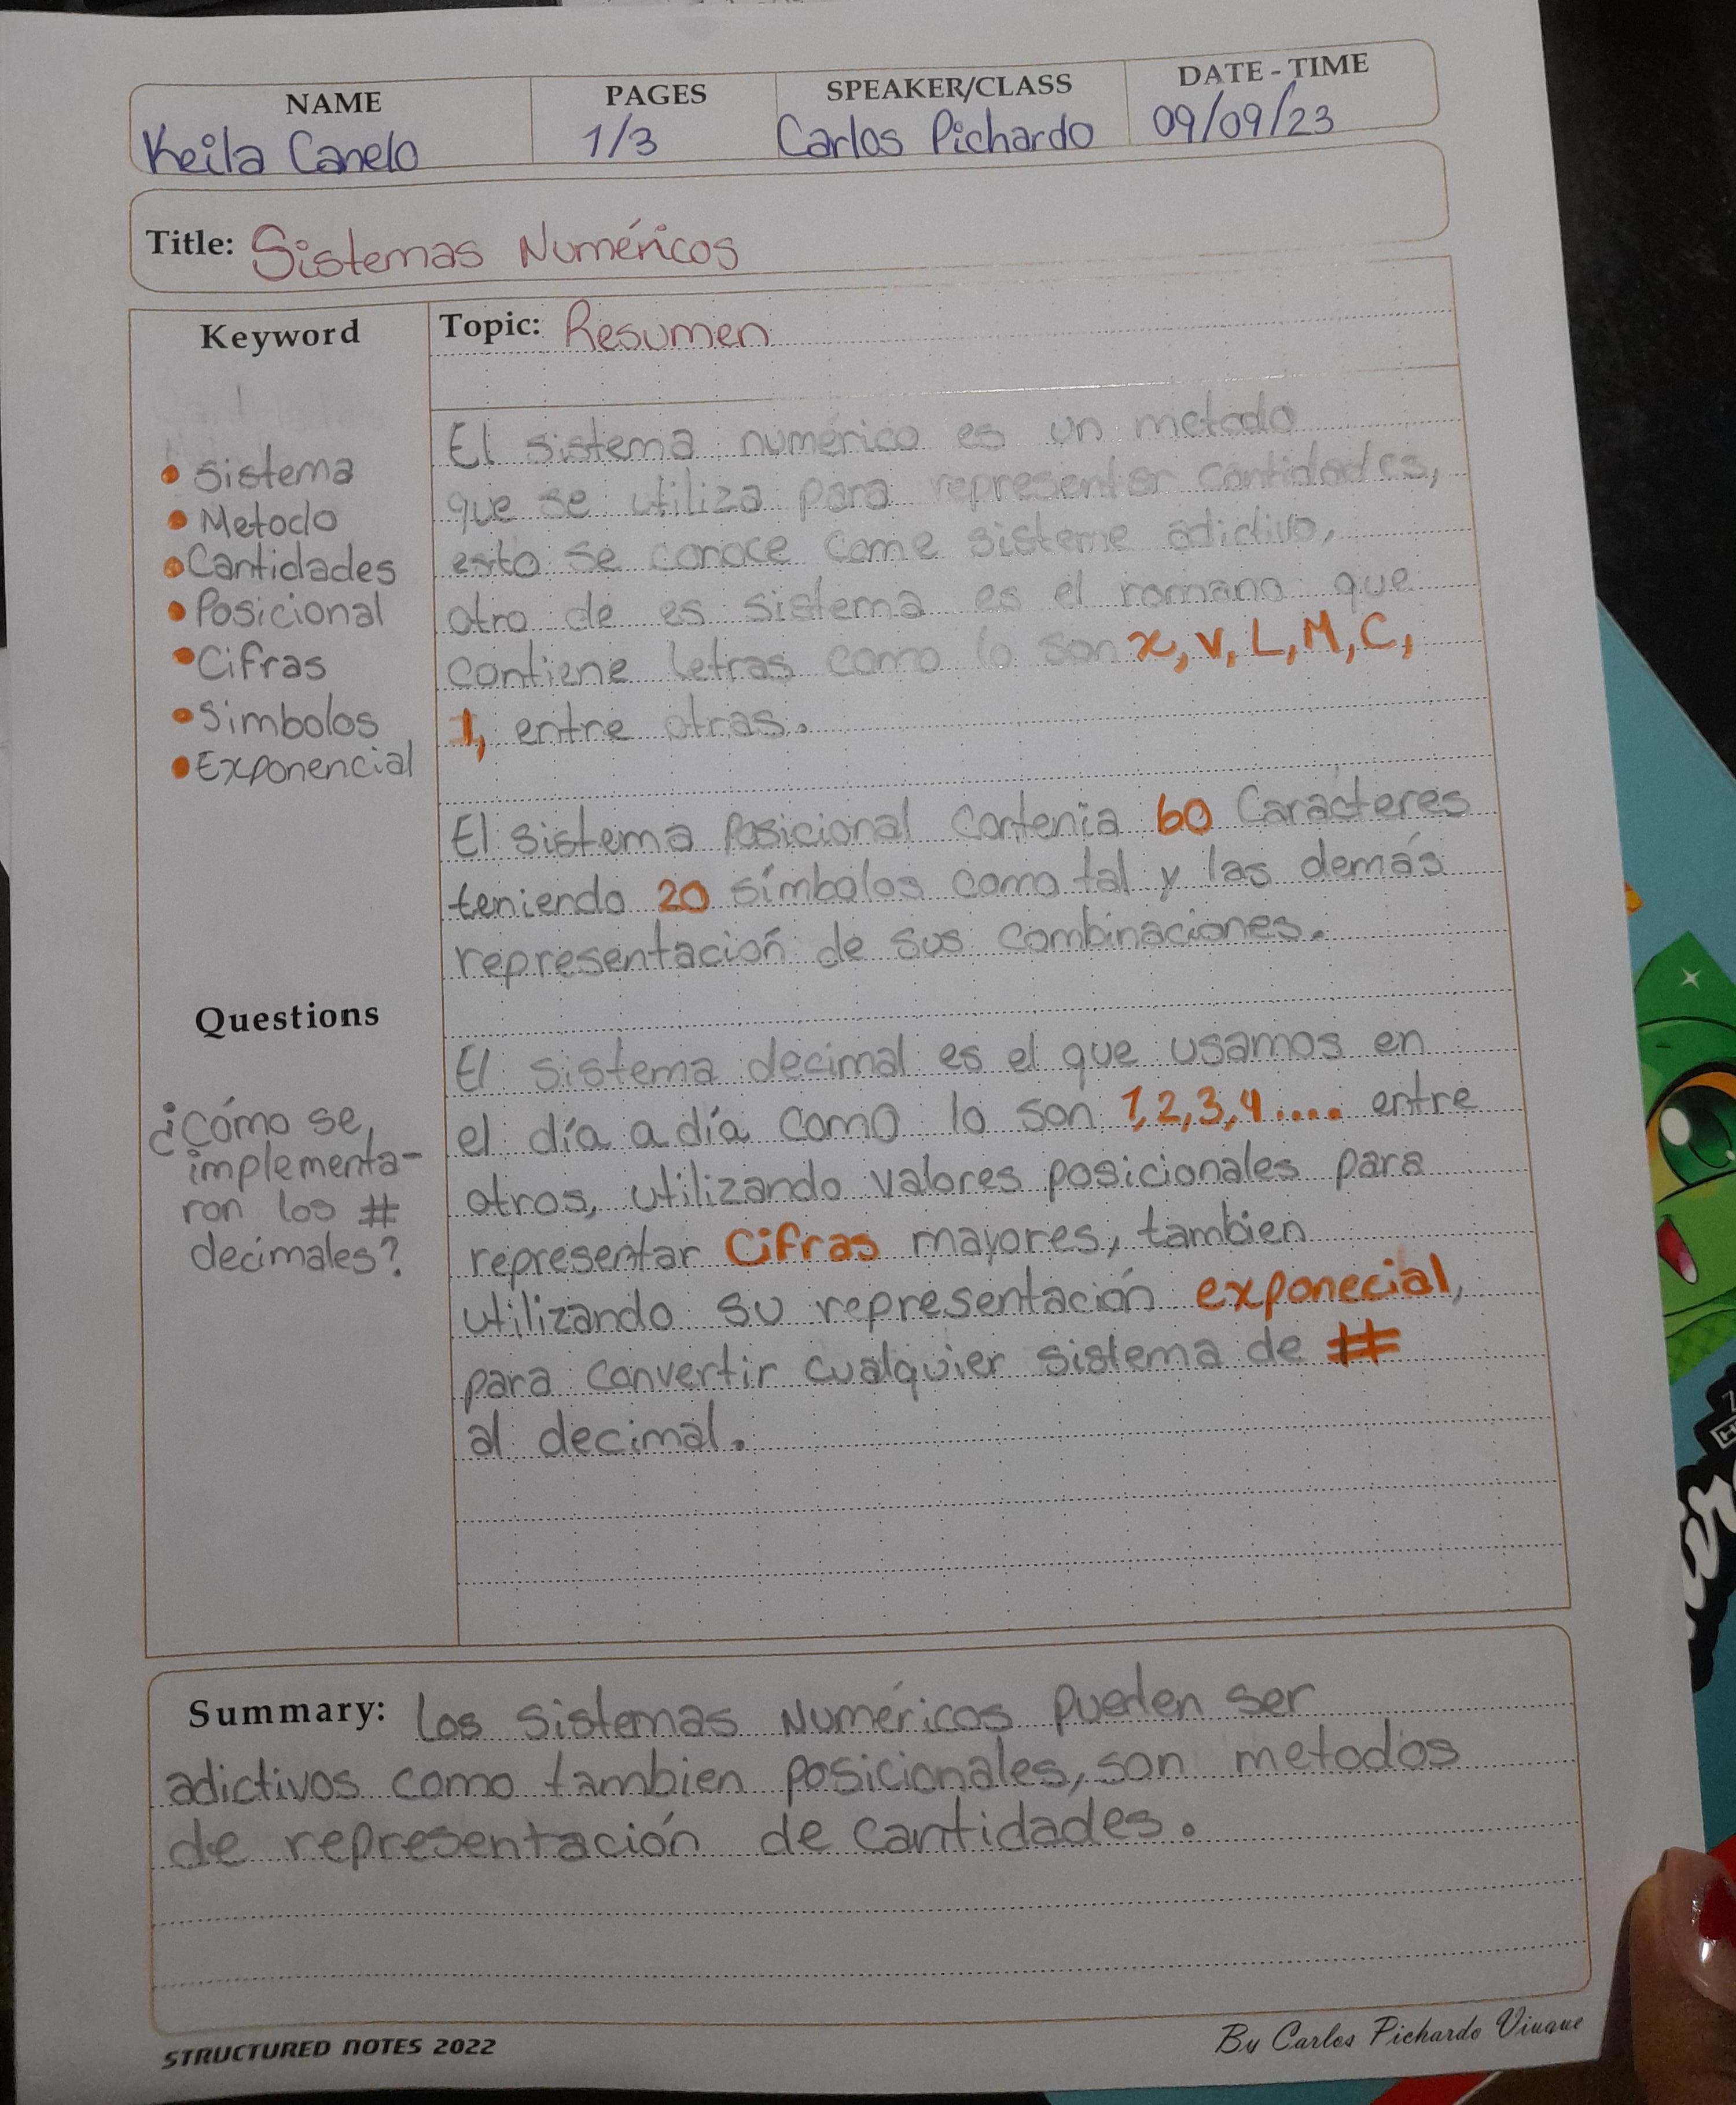 NAME PAGES SPEAKER/CLASS DATE - TIME
Keila Canelo 1/3 Carlos Pichardo 09/09/23
Title: Sistemas Numéricos
Keyword
• Sistema
• Metodo
• Cantidades
• Posicional
• Cifras
• Simbolos
• Exponencial
Questions
¿Cómo se
implementa-
ron los #
decimales?
Topic: Resumen
El sistema numérico es un metodo
que se utiliza para representar cantidades,
esto se conoce come sisteme adictivo,
otro de es sistema es el romano que
contiene letras como lo son x, V, L, M, C,
I, entre otras.
El sistema Posicional contenia 60 Caracteres
teniendo 20 símbolos como tal y las demás
representación de sus combinaciones.
El sistema decimal es el que usamos en
el día a día como lo son 1,2,3,4.... entre
otros, utilizando valores posicionales para
representar Cifras mayores, tambien
utilizando su representación exponecial,
para convertir cualquier sistema de #
al decimal.
Summary: Los Sistemas Numéricos pueden ser
adictivos como tambien posicionales, son metodos
de representación de cantidades.
STRUCTURED NOTES 2022
By Carlos Pichardo Viuque